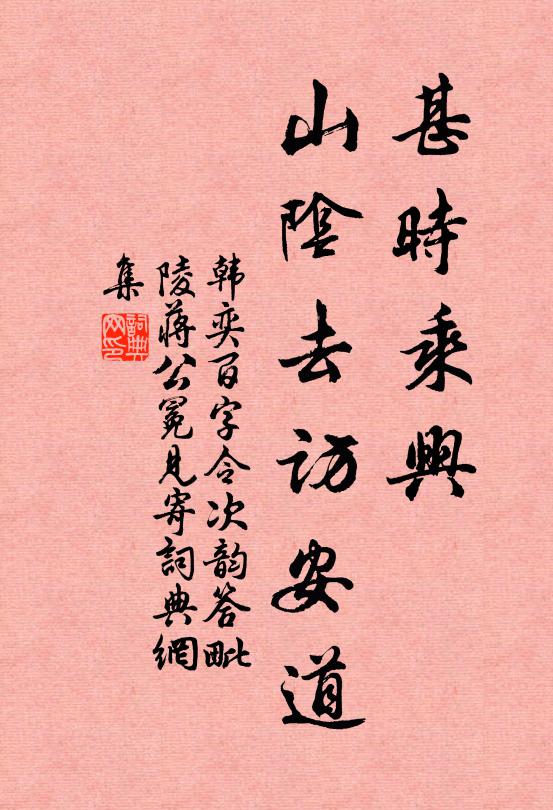 甚時乘興
山陰去訪安道
韩奕百字令次韵答毗
陵蔣公冕見寄詞典網
集
詞典網印